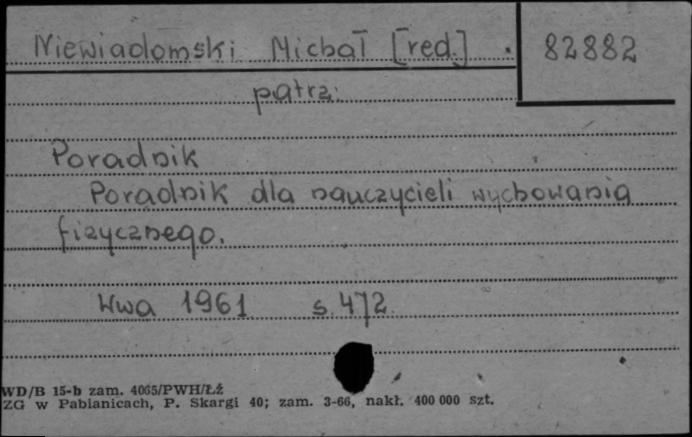 Niewiadomski Michał [red.] . 82882
patrz:
Poradnik
Poradnik dla nauczycieli wychowania
fizycznego.
Wwa 1961 s. 472
WD/B 15-b zam. 4065/PWH/Łź
ZG w Pabianicach, P. Skargi 40; zam. 3-66, nakł. 400 000 szt.